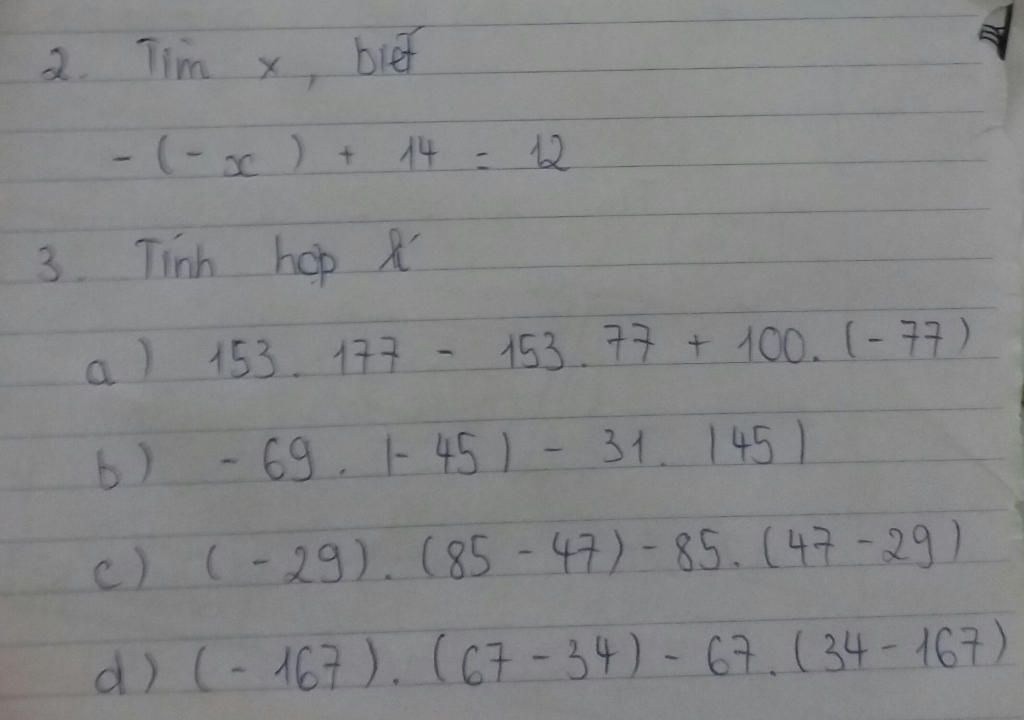 2. Tìm x, biết
- (- x) + 14 = 12
3. Tính hợp lí
a) 153. 177 - 153. 77 + 100. (- 77)
b) - 69. |- 45| - 31. |45|
c) (- 29). (85 - 47) - 85. (47 - 29)
d) (- 167). (67 - 34) - 67. (34 - 167)